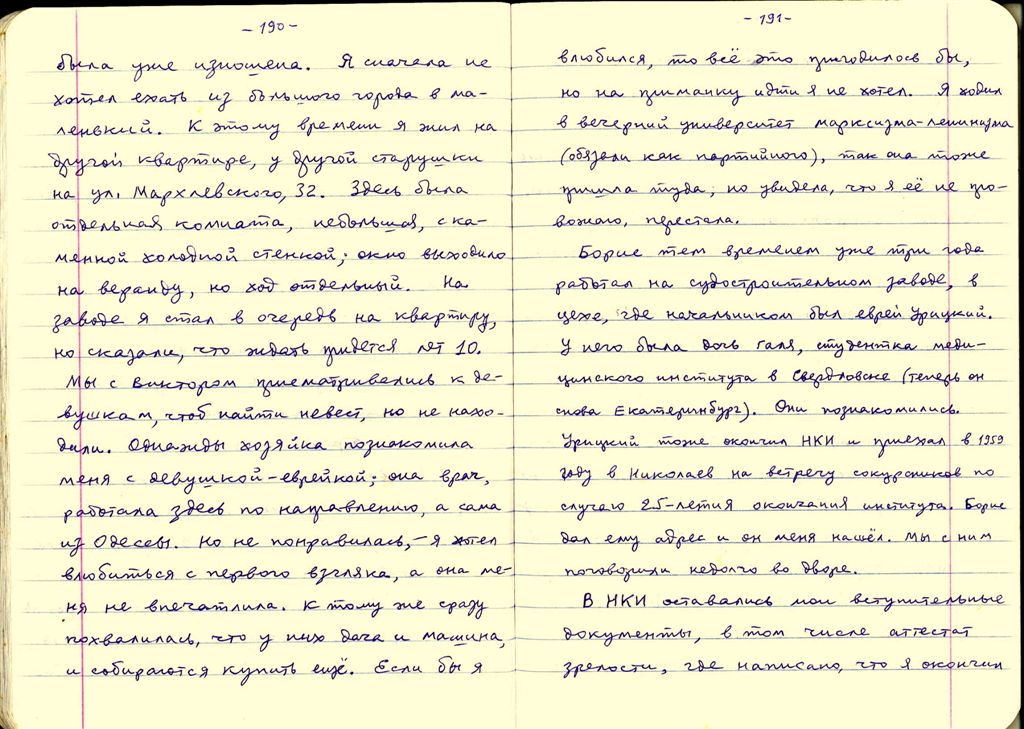 -190-
была уже изношена. Я сначала не
хотел ехать из большого города в ма-
ленький. К этому времени я жил на
другой квартире, у другой старушки
на ул. Мархлевского, 32. Здесь была
отдельная комната, небольшая, с ка-
менной холодной стенкой; окно выходило
на веранду, но ход отдельный. На
заводе я стал в очередь на квартиру,
но сказали, что ждать придётся лет 10.
Мы с Виктором присматривались к де-
вушкам, чтоб найти невест, но не нахо-
дили. Однажды хозяйка познакомила
меня с девушкой-еврейкой; она врач,
работала здесь по направлению, а сама
из Одессы. Но не понравилась, – я хотел
влюбиться с первого взгляка, а она ме-
ня не впечатлила. К тому же сразу
похвалилась, что у них дача и машина,
и собираются купить ещё. Если бы я
-191-
влюбился, то всё это пригодилось бы,
но на приманку идти я не хотел. Я ходил
в вечерний университет марксизма-ленинизма
(обязали как партийного), так она тоже
пришла туда; но увидела, что я её не про-
вожаю, перестала.
Борис тем временем уже три года
работал на судостроительном заводе, в
цехе, где начальником был еврей Урицкий.
У него была дочь Галя, студентка меди-
цинского института в Свердловске (теперь он
снова Екатеринбург). Они познакомились.
Урицкий тоже окончил НКИ и приехал в 1959
году в Николаев на встречу сокурсников по
случаю 25-летия окончания института. Борис
дал ему адрес и он меня нашёл. Мы с ним
поговорили недолго во дворе.
В НКИ оставались мои вступительные
документы, в том числе аттестат
зрелости, где написано, что я окончил